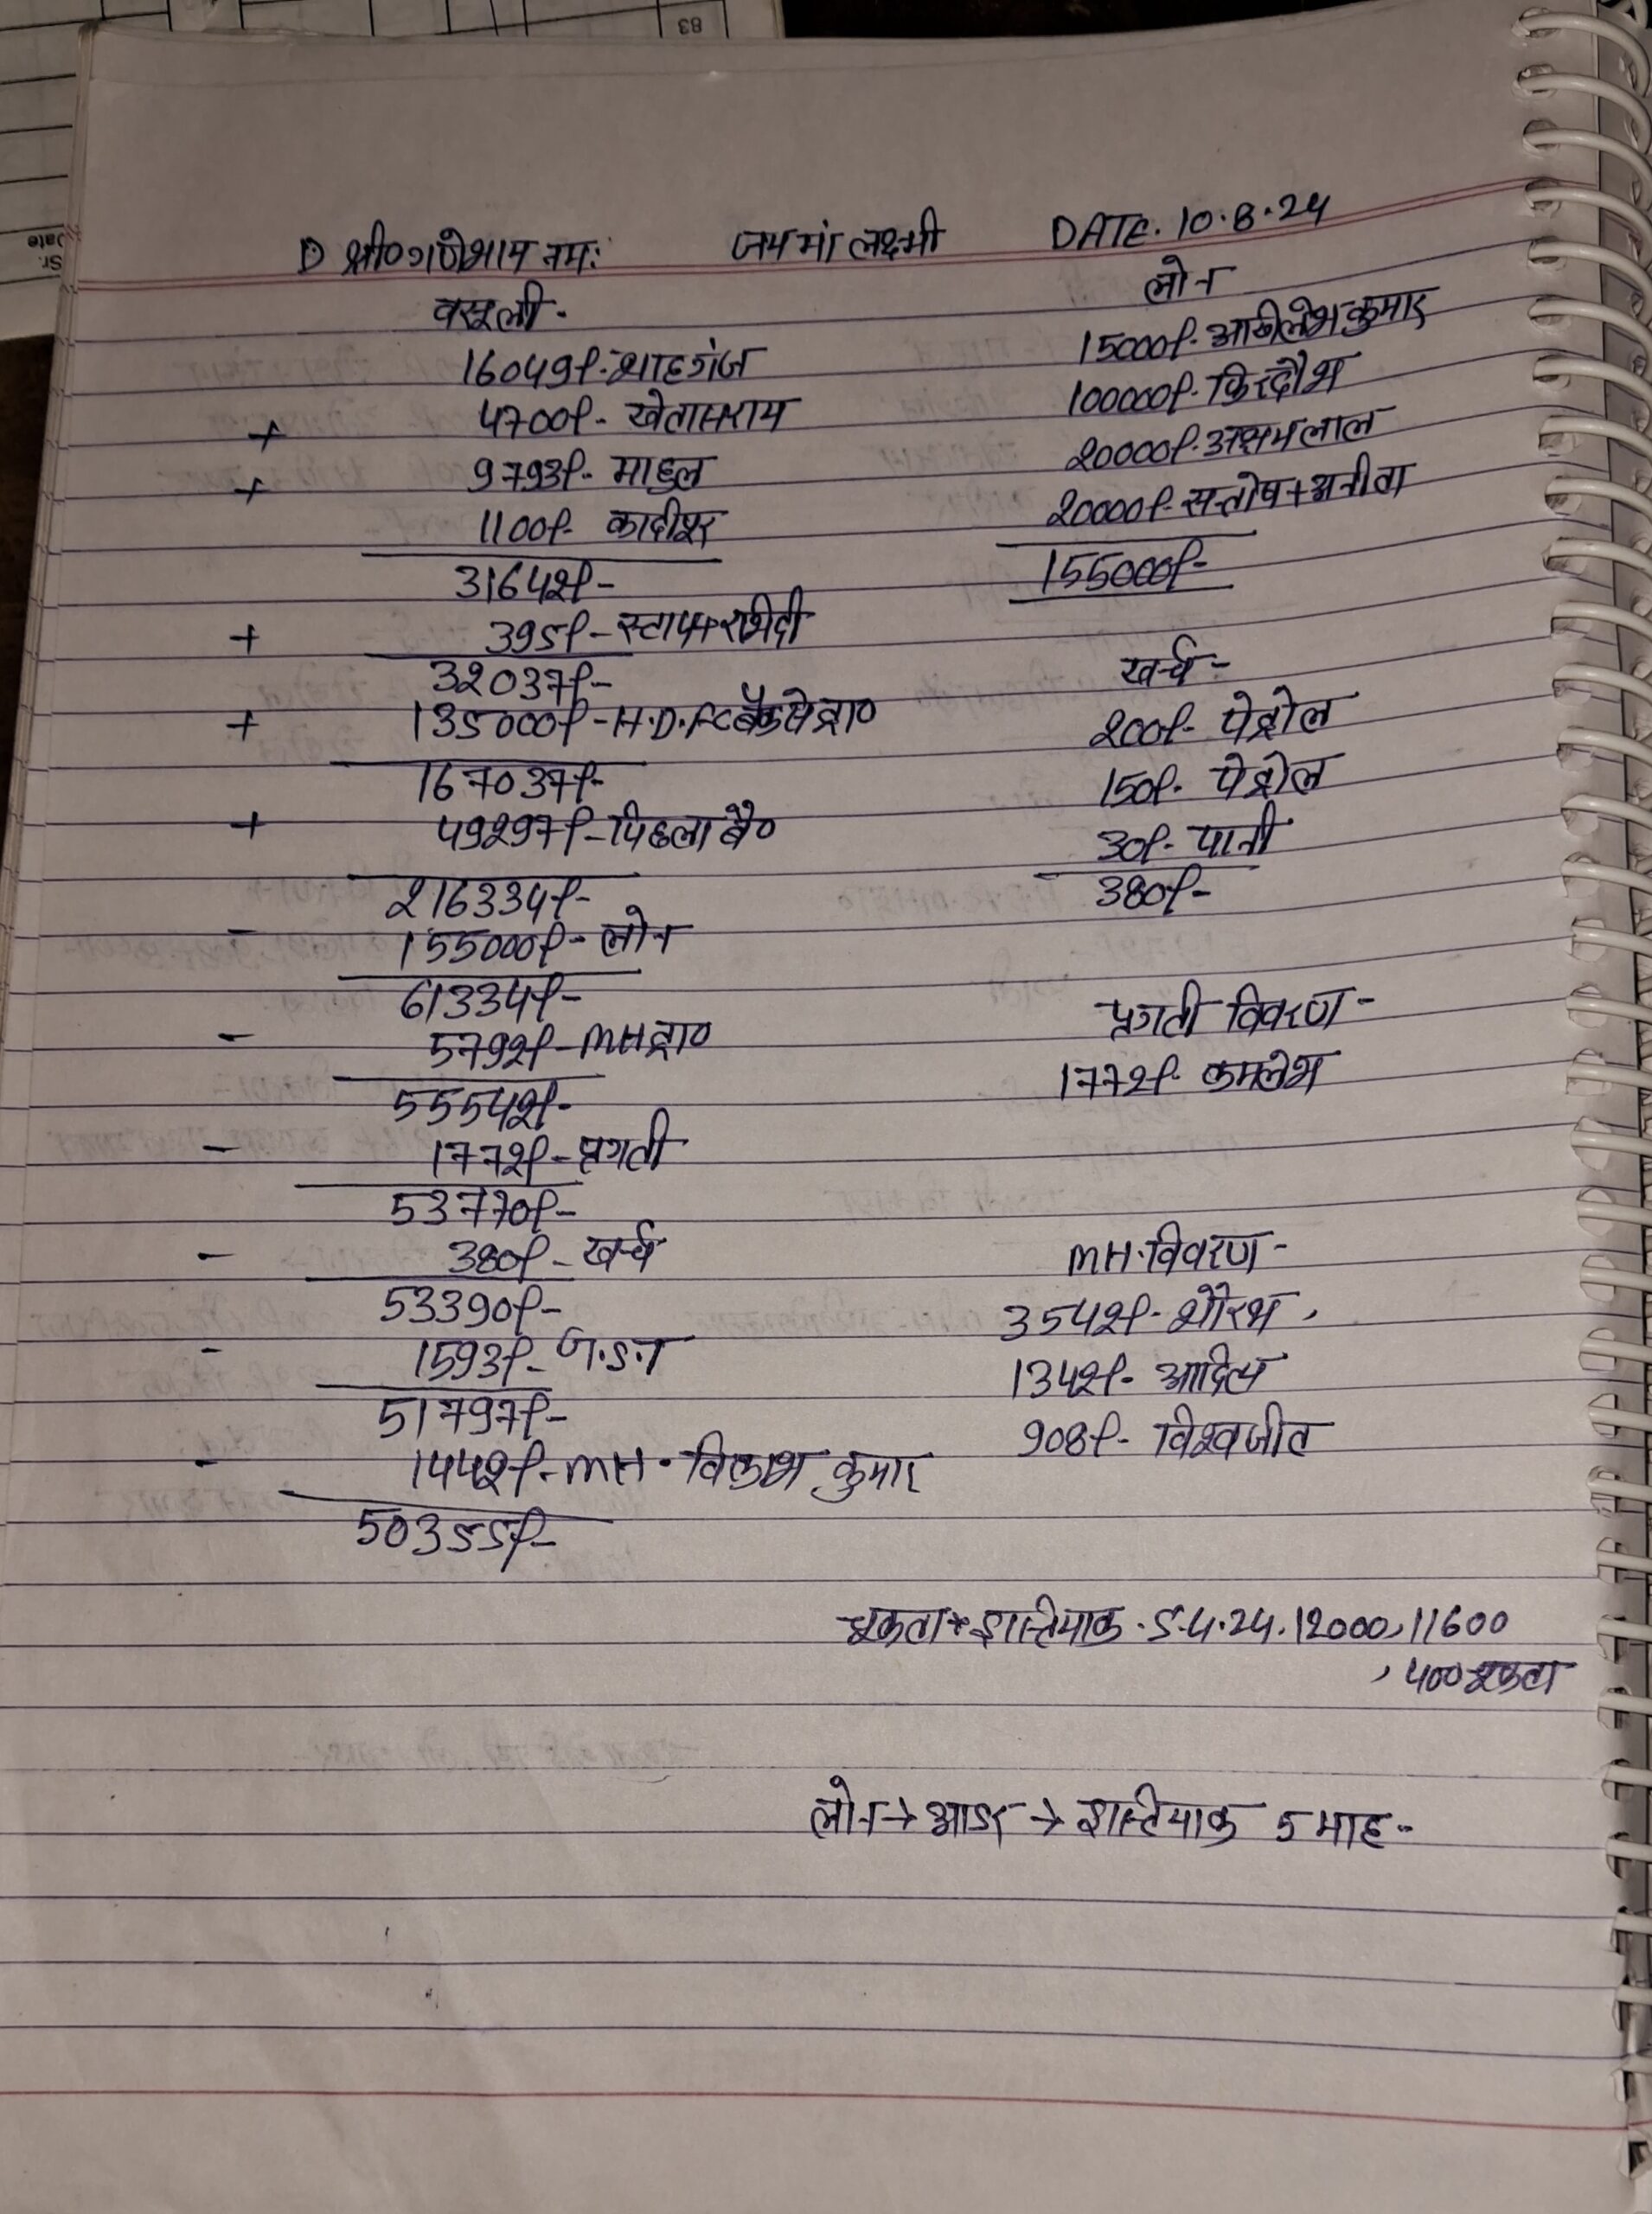 श्री० गणेशाय नमः जय मां लक्ष्मी DATE. 10.8.24
वसूली -
16049/- शाहगंज
+ 4700/- खेतासराय
+ 9793/- माहुल
1100/- कादीपुर
31642/-
+ 395/- स्टाम्प+रसीदी
32037/-
+ 135000/- H.D.FC बैंक से प्रा०
167037/-
+ 49297/- पिछला बै०
216334/-
- 155000/- लोन
61334/-
- 5792/- MH प्रा०
55542/-
- 1772/- प्रगती
53770/-
- 380/- खर्च
53390/-
- 1593/- G.S.T
51797/-
- 1442/- MH. विकाश कुमार
50355/-
लोन
15000/- अखिलेश कुमार
100000/- फिरदौश
20000/- लाल
20000/- सन्तोष + अनीता
155000/-
खर्च -
200/- पेट्रोल
150/- पेट्रोल
30/- पानी
380/-
प्रगती विवरण -
1772/- कमलेश
MH. विवरण -
3542/- शौरभ
1342/- आदित्य
908/- विश्वजीत
5.4.24. 12000, 11600
, 400
लोन → → 5 माह -
83
Date
Sr.